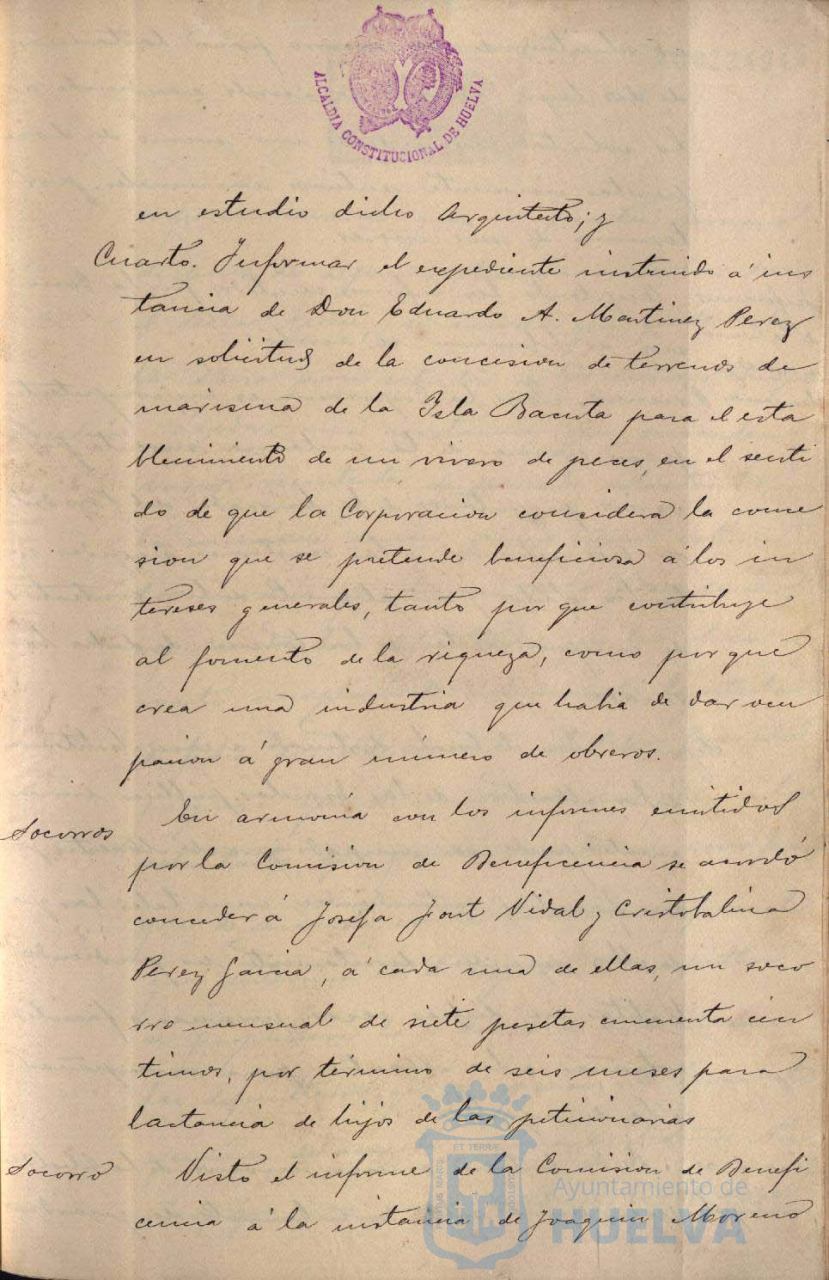 ALCALDIA CONSTITUCIONAL DE HUELVA
en estudio dicho Arquitecto; y
Cuarto. Informar el expediente instruido á ins
tancia de Don Eduardo A. Martinez Perez
en solicitud de la concesion de terrenos de
marisma de la Isla Bacuta para el esta
blecimiento de un vivero de peces, en el senti
do de que la Corporacion considera la conce
sion que se pretende beneficiosa á los in
tereses generales, tanto por que contribuye
al fomento de la riqueza, como por que
crea una industria que habia de dar ocu
pacion á gran número de obreros.
Socorros
En armonia con los informes emitidos
por la Comision de Beneficencia se acordó
conceder á Josefa Font Vidal y Cristobalina
Perez Garcia, á cada una de ellas, un soco
rro mensual de siete pesetas cincuenta cén
timos, por término de seis meses para
lactancia de hijos de las peticionarias
Socorro
Visto el informe de la Comision de Benefi
cencia á la instancia de Joaquin Moreno
Ayuntamiento de
HUELVA